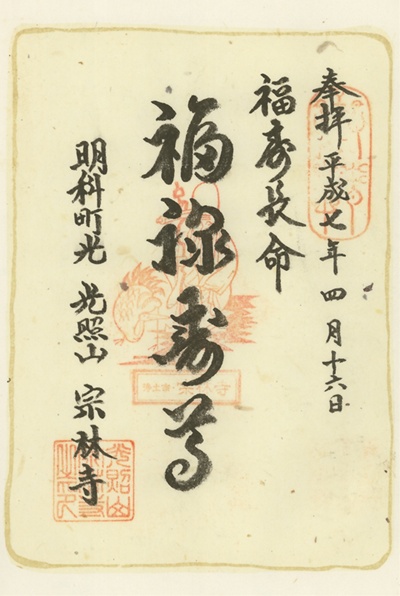 奉拝 平成七年四月十六日
福寿長命
福禄寿尊
明科町光 光照山 宗林寺